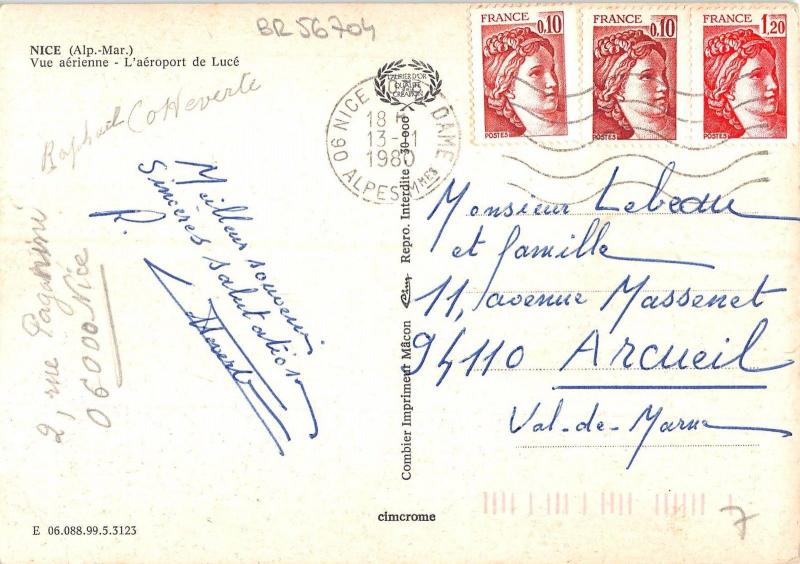 BR56704
NICE (Alp.-Mar.)
Vue aérienne - L'aéroport de Lucé
Raphaël Cotteverte
2, rue Paganini
06000 Nice
Meilleur souvenir
sincères salutations
R. Cotteverte
FRANCE 0,10
POSTES
FRANCE 0,10
POSTES
FRANCE 1,20
POSTES
06 NICE DAME
18 H
13-
1980
ALPES MMES
Combier Imprimeur Mâcon Cim Repro. Interdite
Monsieur Lebeau
et famille
11, avenue Massenet
94110 Arcueil
Val-de-Marne
7
cimcrome
E 06.088.99.5.3123